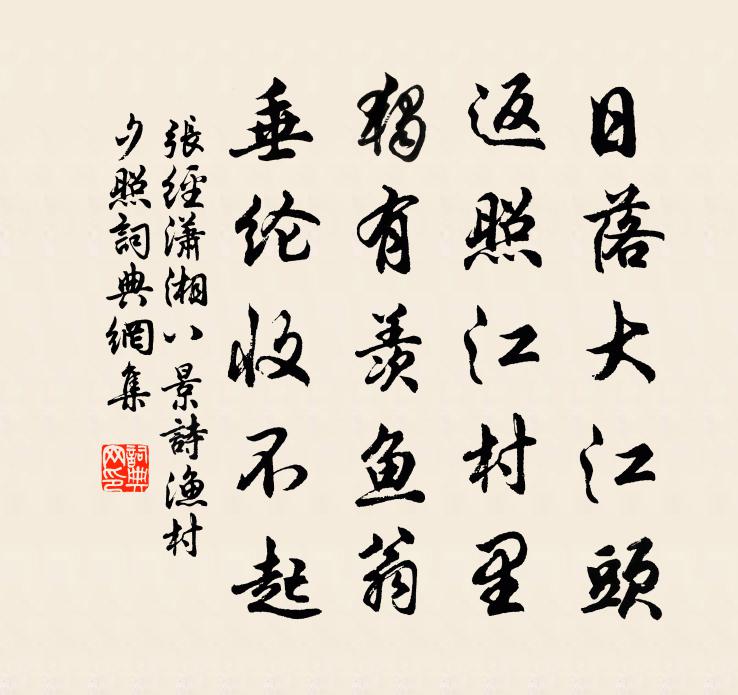 日落大江頭
返照江村里
獨有羨魚翁
垂纶收不起
張經瀟湘八景詩漁村
夕照詞典網集
詞典
网印